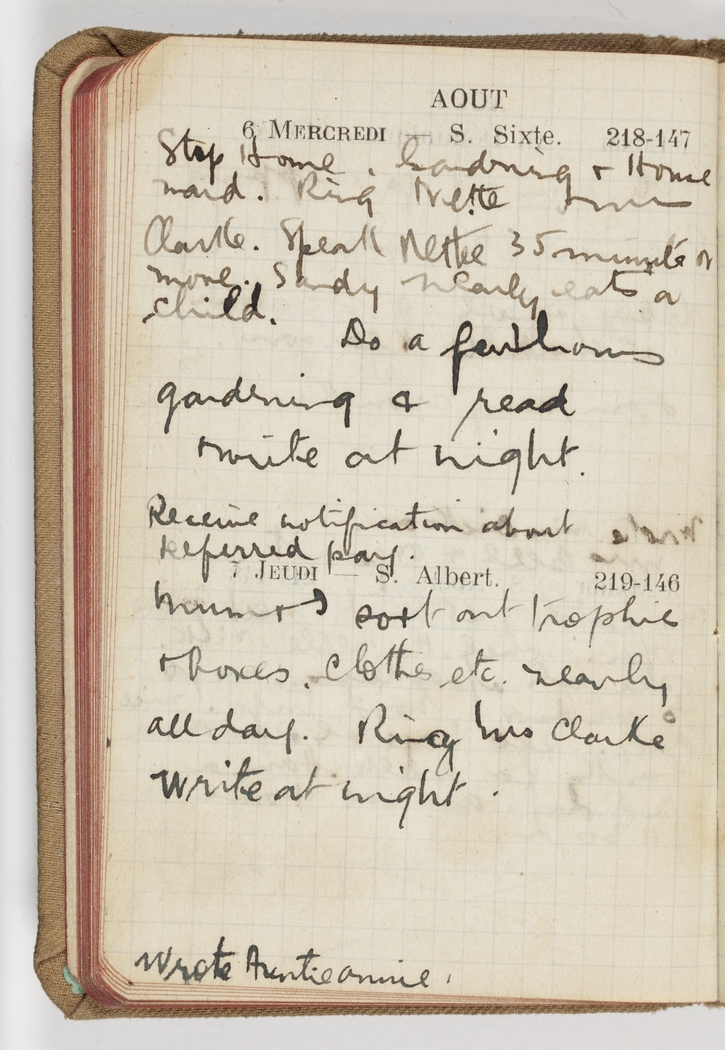 AOUT
6 MERCREDI — S. Sixte. 218-147
Stop Home. Gardning & House
maid. Ring Nette
Clarke. Speak Nette 35 minutes or
more. Sandy nearly eats a
child.
Do a few hours
gardening & read
& write at night.
Receive notification about
deferred pay.
7 JEUDI — S. Albert. 219-146
Mum & I sort out trophies
& boxes, clothes etc. nearly
all day. Ring Mrs Clarke
Write at night.
Wrote Auntie Annie.